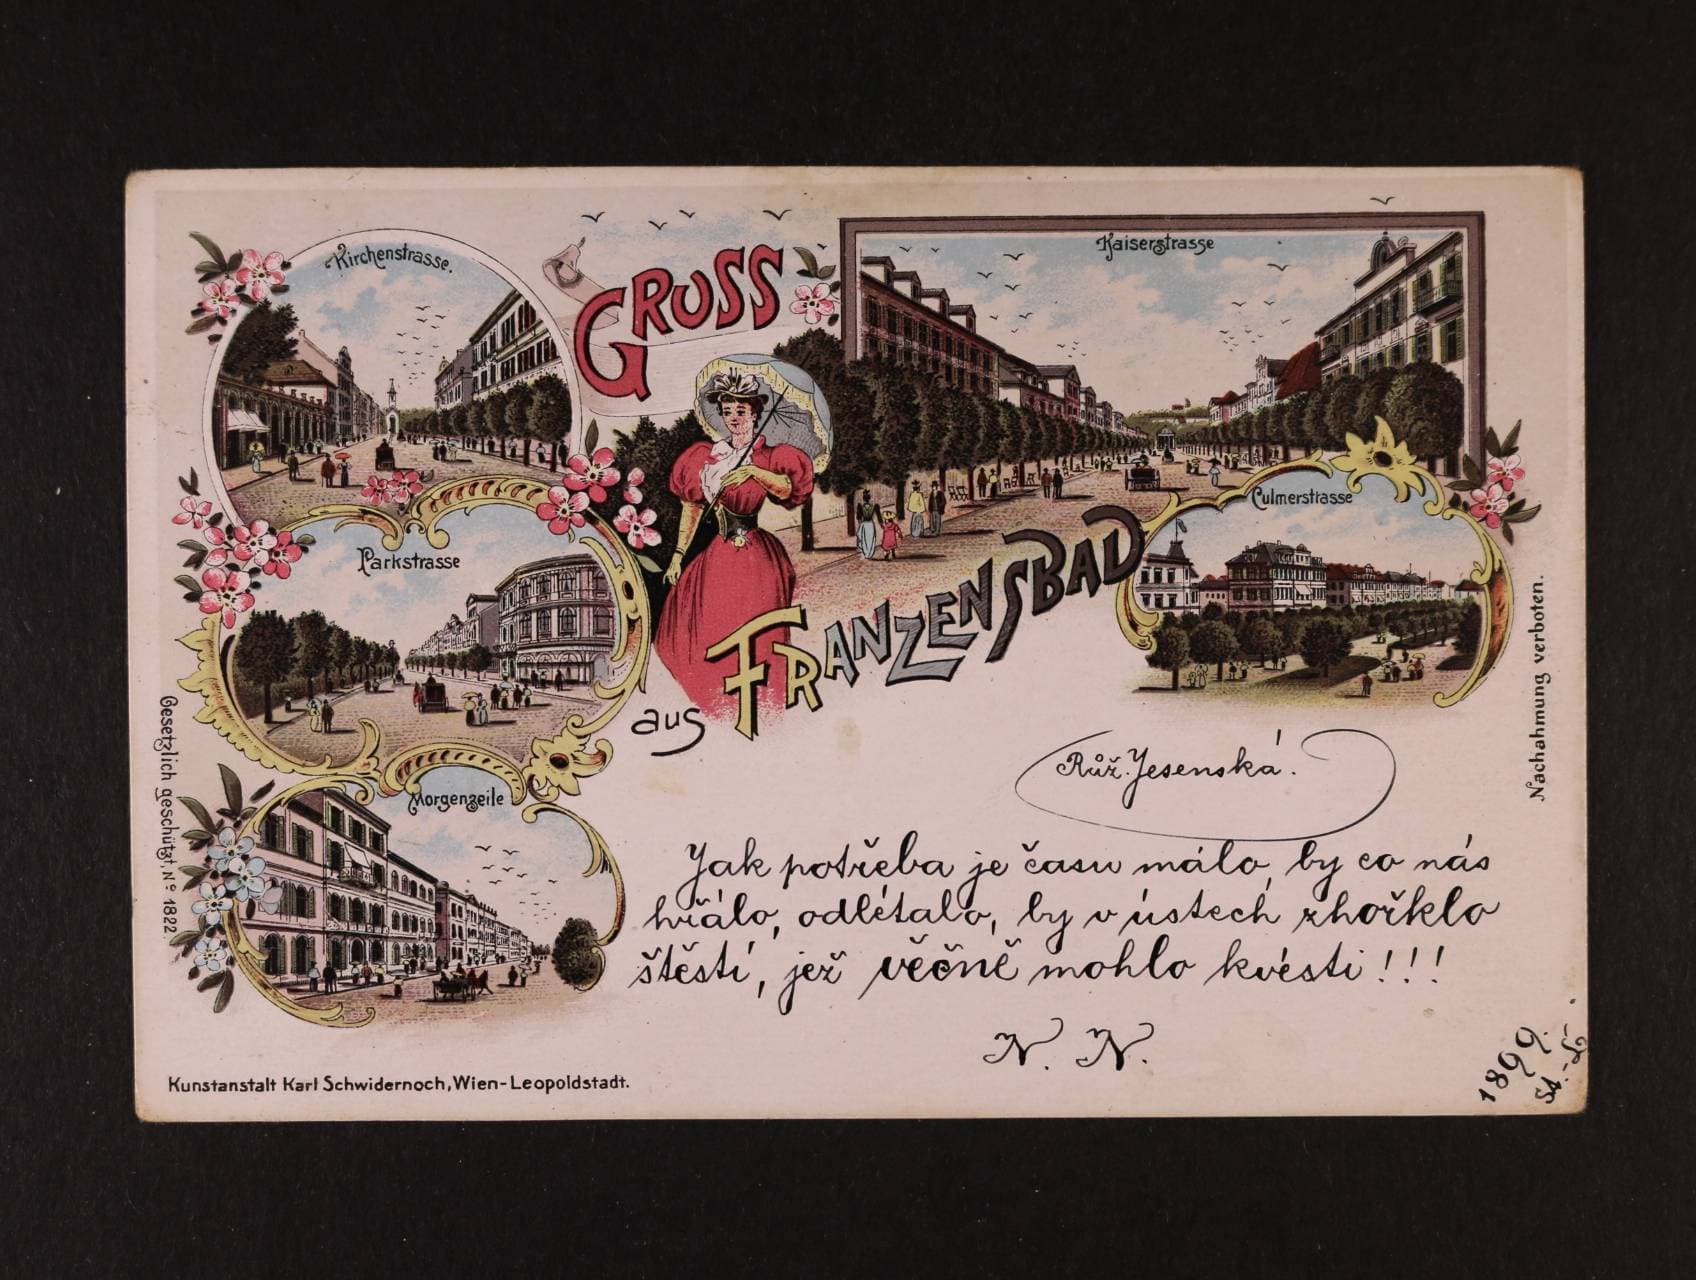 Kirchenstrasse.
GRUSS
Kaiserstrasse
Parkstrasse
Culmerstrasse
aus FRANZENSBAD
Morgenzeile
Gesetzlich geschützt, Nº 1822
Nachahmung verboten.
Růž. Jesenská.
Jak potřeba je času málo, by co nás
hřálo, odlétalo, by v ústech zhořklo
štěstí, jež věčně mohlo kvésti!!!
N. N.
Kunstanstalt Karl Schwidernoch, Wien-Leopoldstadt.
1899.